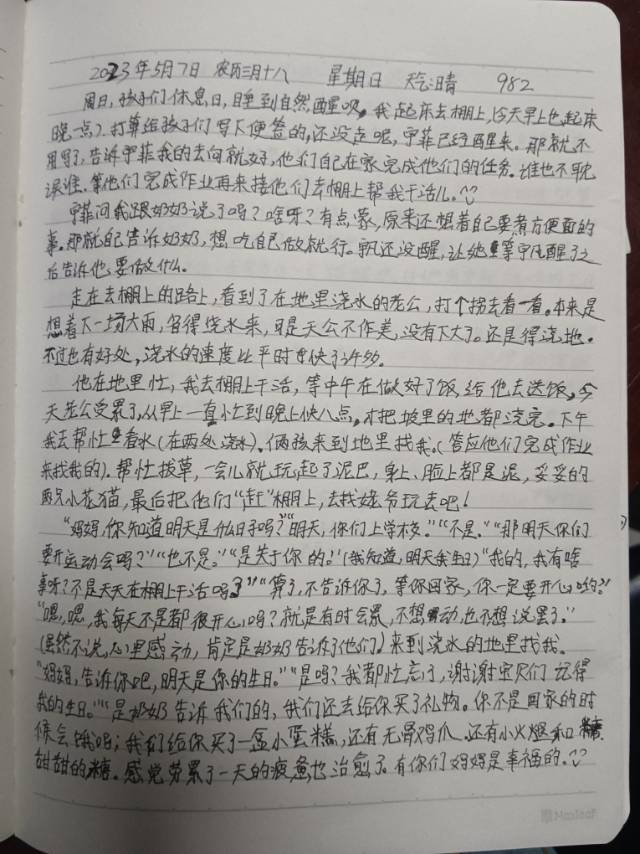 2023年5月7日 农历三月十八 星期日 天气:晴 982
周日,孩子们休息日,睡到自然醒呗。我起床去棚上,(今天早上也起床
晚一点)。打算给孩子们写下便签的,还没走呢,宇菲已经醒来。那就不
用写了,告诉宇菲我的去向就好,他们自己在家完成他们的任务。谁也不耽
误谁。等他们完成作业再来接他们去棚上帮我干活儿。
宇菲问我跟奶奶说了吗?啥呀?有点蒙,原来还想着自己要煮方便面的
事。那就自己告诉奶奶,想吃自己做就行。宇凡还没醒,让她等宇凡醒了之
后告诉他要做什么。
走在去棚上的路上,看到了在地里浇水的老公,打个拐去看一看。本来是
想着下一场大雨,省得浇水来,可是天公不作美,没有下大了。还是得浇地。
不过也有好处,浇水的速度比平时更快了许多。
他在地里忙,我去棚上干活,等中午在做好了饭,给他去送饭。今
天老公受累了,从早上一直忙到晚上快八点,才把坡里的地都浇完。下午
我去帮忙看水(在两处浇水)。俩孩来到地里找我。(答应他们完成作业
来找我的)。帮忙拔草,一会儿就玩起了泥巴,身上、脸上都是泥,妥妥的
两只小花猫,最后把他们“赶”棚上,去找姥爷玩去吧!
“妈妈,你知道明天是什么日子吗?”“明天,你们上学校。”“不是。”“那明天你们
要开运动会吗?”“也不是。”“是关于你的。”(我知道,明天我生日)“我的,我有啥
事呀?不是天天在棚上干活吗?”“算了,不告诉你了,等你回家,你一定要开心哟。”
“嗯,嗯,我每天不是都很开心吗?就是有时会累,不想动也不想说罢了。”
(虽然不说,心里感动,肯定是奶奶告诉了他们)来到浇水的地里找我。
“妈妈,告诉你吧,明天是你的生日。”“是吗?我都忙忘了,谢谢宝贝们记得
我的生日。”“是奶奶告诉我们的,我们还去给你买了礼物。你不是回家的时
候会饿吗;我们给你买了一盒小蛋糕,还有无骨鸡爪。还有小火腿和糖
甜甜的糖。感觉劳累了一天的疲惫也治愈了。有你们妈妈是幸福的。